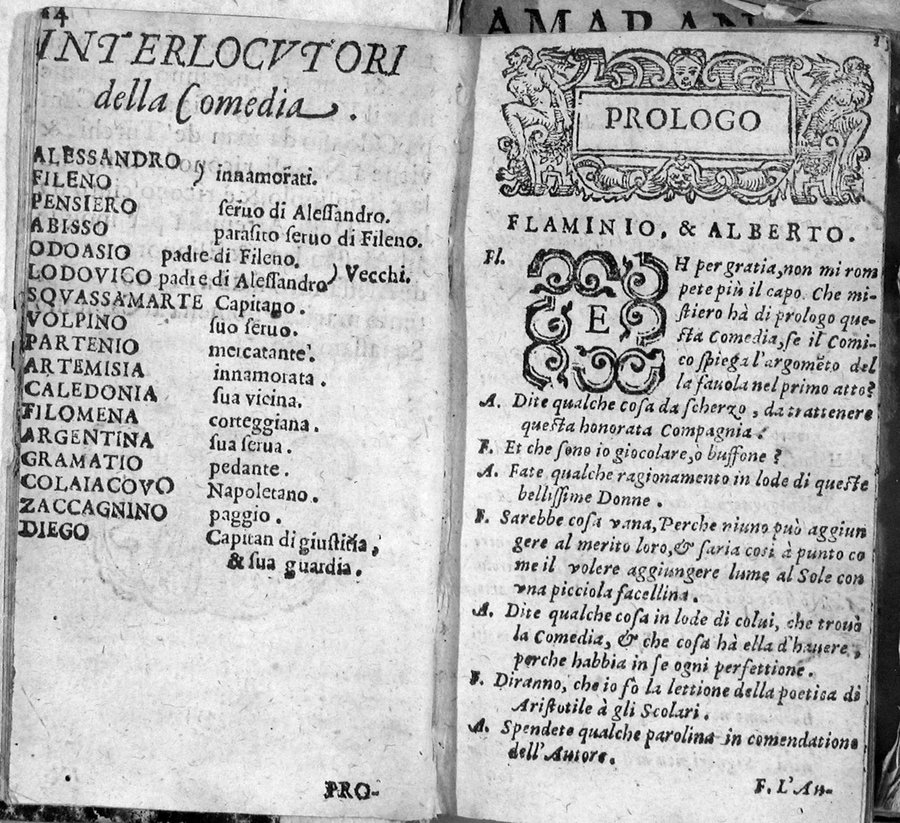 14
INTERLOCVTORI
della Comedia.
ALESSANDRO
FILENO } innamorati.
PENSIERO seruo di Alessandro.
ABISSO parasito seruo di Fileno.
ODOASIO padre di Fileno.
LODOVICO padre di Alessandro } Vecchi.
SQVASSAMARTE Capitano.
VOLPINO suo seruo.
PARTENIO mercatante.
ARTEMISIA innamorata.
CALEDONIA sua vicina.
FILOMENA corteggiana.
ARGENTINA sua serua.
GRAMATIO pedante.
COLAIACOVO Napoletano.
ZACCAGNINO paggio.
DIEGO Capitan di giustitia,
& sua guardia.
PRO-
AMARAN
PROLOGO
FLAMINIO, & ALBERTO.
Fl. EH per gratia, non mi rom
pete più il capo. Che mi-
stiero hà di prologo que-
sta Comedia, se il Comi-
co spiega l'argomẽto del
la fauola nel primo atto?
A. Dite qualche cosa da scherzo, da trattenere
questa honorata Compagnia.
F. Et che sono io giocolare, o buffone?
A. Fate qualche ragionamento in lode di queste
bellissime Donne.
F. Sarebbe cosa vana, Perche niuno può aggiun
gere al merito loro, & saria così à punto co
me il volere aggiungere lume al Sole con
vna picciola facellina.
A. Dite qualche cosa in lode di colui, che trouò
la Comedia, & che cosa hà ella d'hauere,
perche habbia in se ogni perfettione.
F. Diranno, che io fò la lettione della poetica di
Aristotile à gli Scolari.
A. Spendete qualche parolina in comendatione
dell'Autore.
F. L'Au-